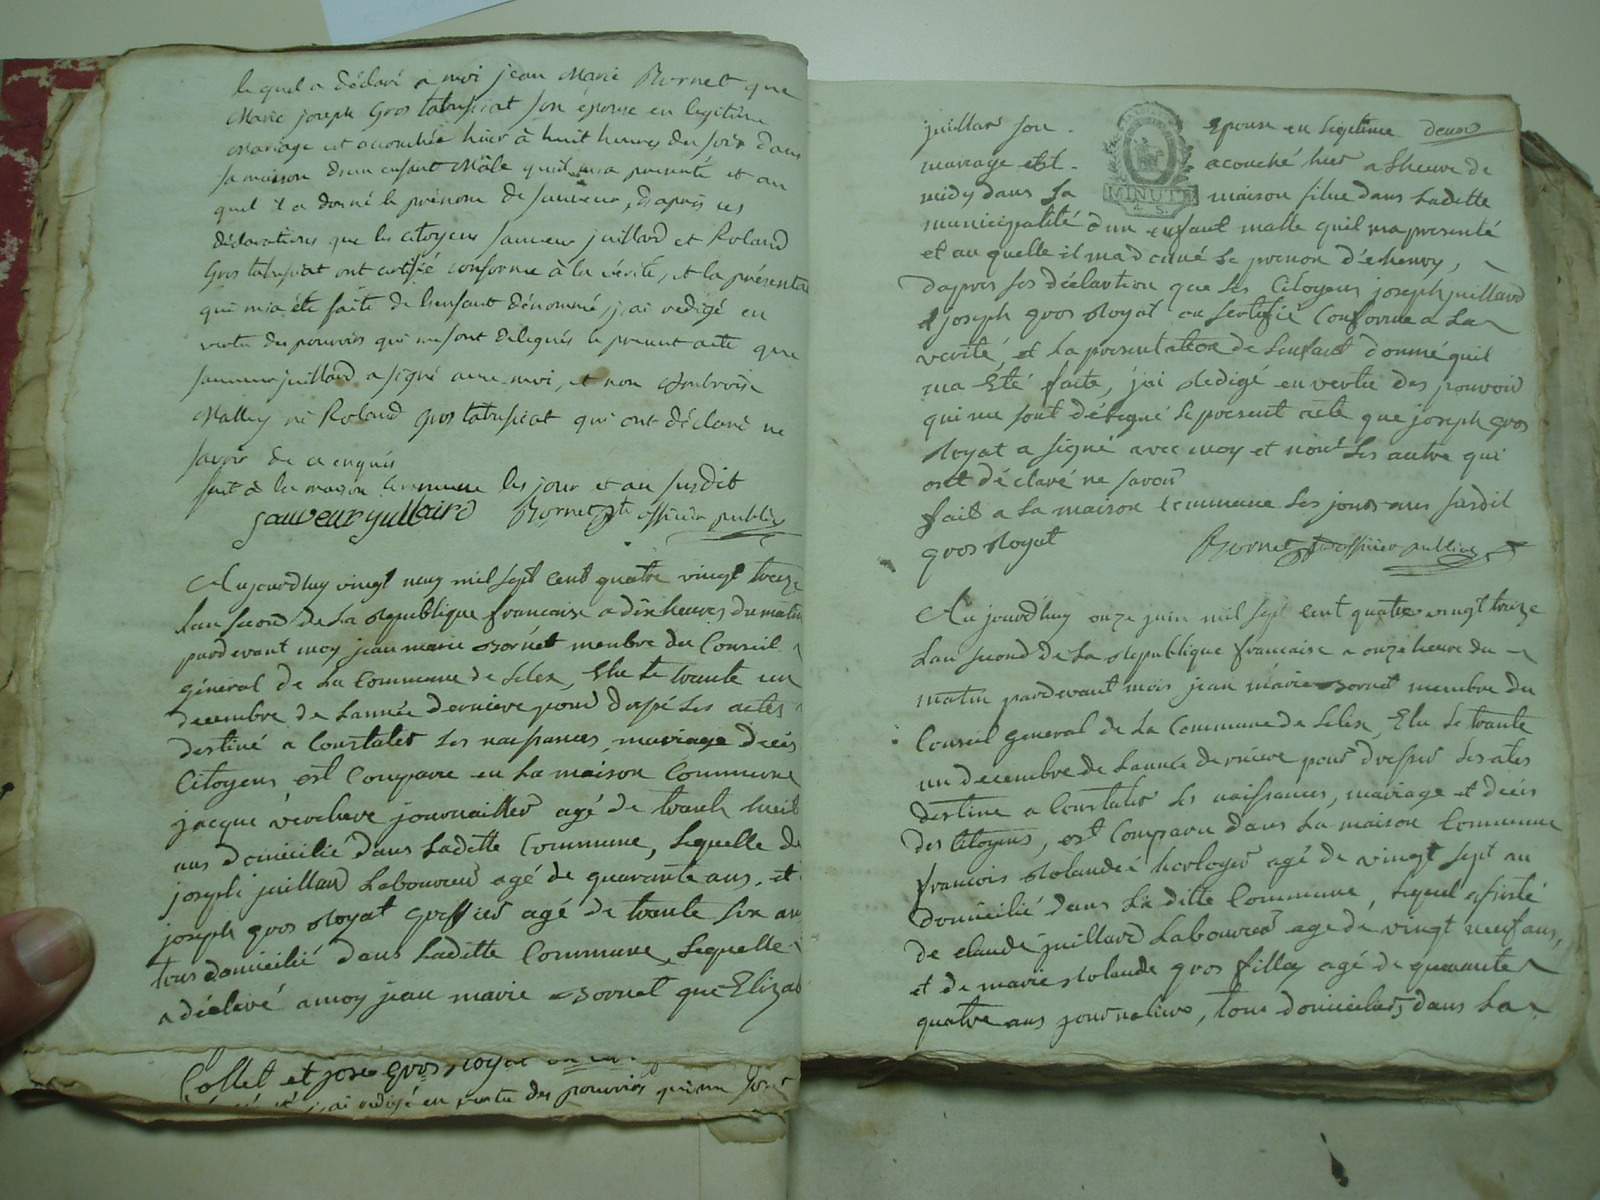 lequel a déclaré a moi jean Marie Bornet que
Marie joseph Gros tabussiat son épouse en legitime
Mariage est acouchée hier à huit heures du soir dans
sa maison d'un enfant Mâle quil m'a presenté et au
quel il a donné le prénom de sauveur, d'après ces
déclarations que les citoyens sauveur juillard et Roland
Gros tabussiat ont certifié conforme à la vérité, et la présenta
qui m'a été faite de l'enfant dénommé, j'ai redigé en
vertu des pouvoirs qui me sont delegués le present acte que
sauveur juillard a signé avec moi, et non Ambroise
Mathey ni Roland Gros tabussiat qui ont déclaré ne
savoir de ce enquis
fait à la maison Commune les jour et an susdit
Sauveur jullaird Bornet officier public
Aujourdhuy vingt neuf mil sept cent quatre vingt treize
lan second de La Republique francaise a dix heures du matin
pardevant moy jean marie Bornet menbre du Conseil
général de La Commune de Lelex, Elu le trante un
decembre de Lannée derniere pour dressé Les actes
destiné a Constater Les naissances, mariage décès
Citoyens, est Comparu en La maison Commune
jacque vercheve journaillier agé de trante huit
ans domicilié dans Laditte Commune, Lequelle de
joseph juillard Laboureur agé de quarante ans, et
joseph gros Royat greffier agé de trante six an
tous domicilié dans Laditte Commune, Lequelle
a déclaré a moy jean marie Bornet que Elizab
Collet et jose gros Royat
j'ai redigé en vertu des pouvoirs qui me sont
juillard son Epouse en Legitime deux
mariage est acouché hier a heure de
midy dans Sa MINUTE maison situe dans Laditte
municipalité d'un enfant malle quil ma presenté
et au quelle il ma donné Le prenon d'ehenry,
dapres ses déclartion que Les Citoyens joseph juillard
et joseph gros Royat on sertifié Conforme a La
verité, et La presentation de Lenfant domné quil
ma Eté faite, j'ai Redigé en vertu des pouvoir
qui me sont délegué Le present acte que joseph gros
Royat a signé avec moy et nont Les autre qui
ont déclaré ne savoir
fait a La maison Commune Les jours ans susdit
gros Royat Bornet officier public
Aujourd'huy onze juin mil sept cent quatre vingt treize
Lan second de La Republique francaise a onze heure du
matin pardevant mois jean marie Bornet membre du
Conseil general de La Commune de Lelex, Elu Le trante
un decembre de Lannée derniere pour dresser Les actes
destine a Constater Les naissances, mairage et décés
des Citoyens, est Comparu dans La maison Commune
francois Rolandet horloger agé de vingt sept an
domicilié dans La ditte Commune, Lequel assisté
de claude juillard Laboureur age de vingt neuf ans,
et de marie Rolande gros fillex agé de quarante
quatre ans journaliere, tous domicilies dans La